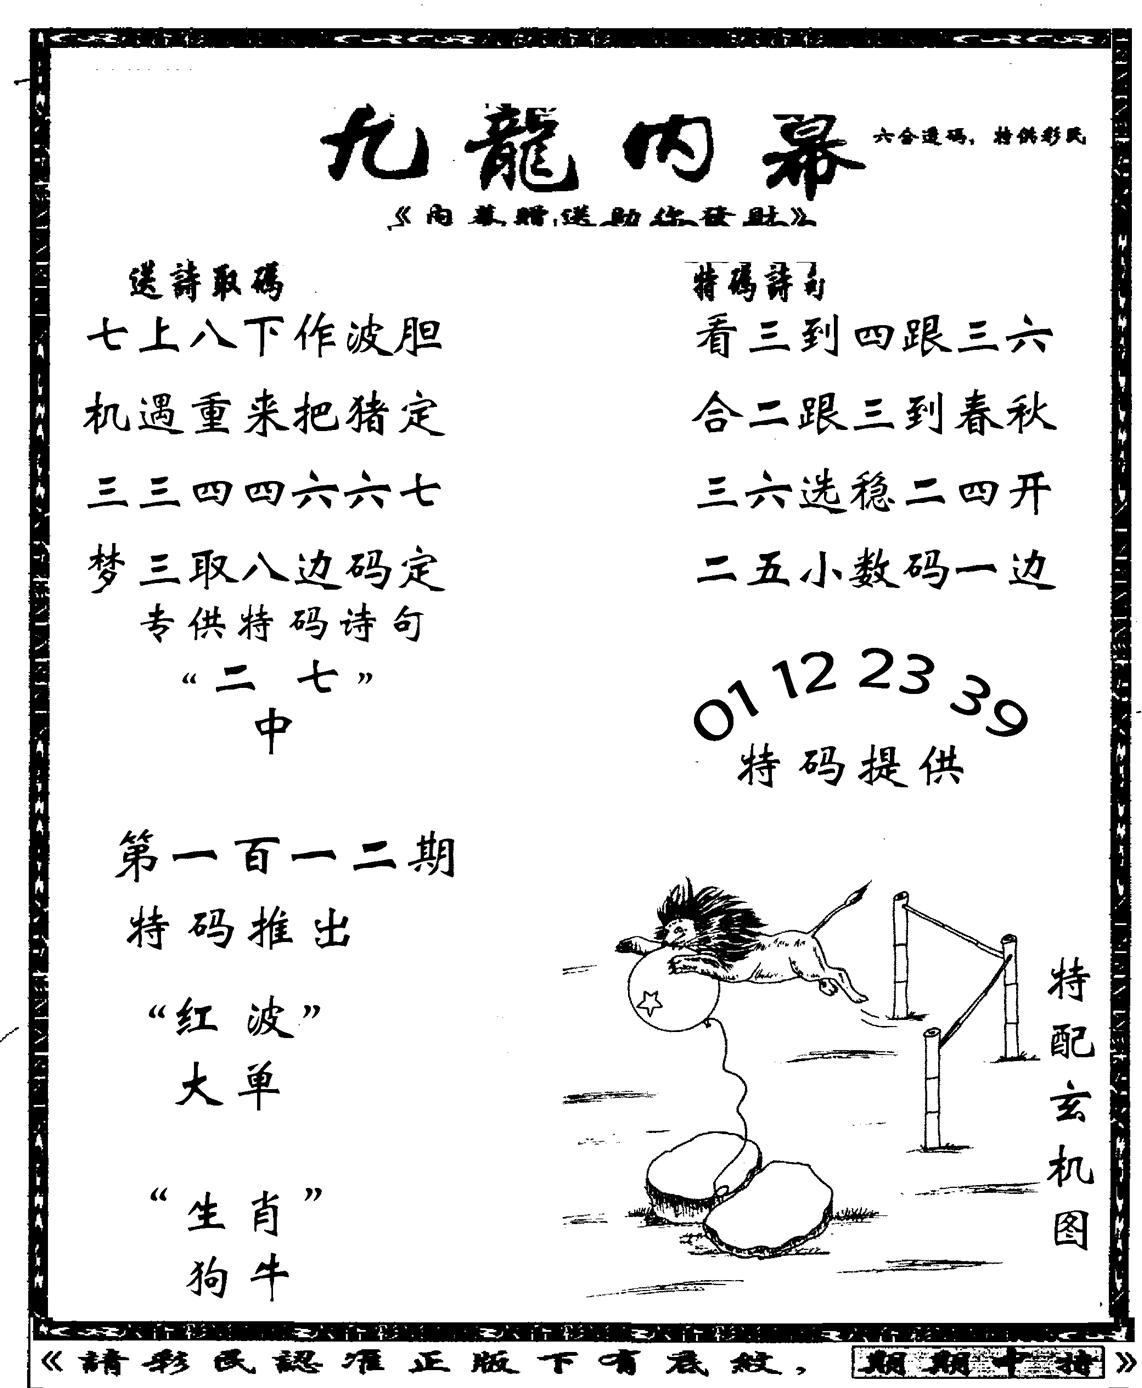 九龍内幕
六合透碼，特供彩民
《内幕贈送助你發財》
送詩取碼
七上八下作波胆
机遇重来把猪定
三三四四六六七
梦三取八边码定
专供特码诗句
“二 七”
中
特碼詩句
看三到四跟三六
合二跟三到春秋
三六选稳二四开
二五小数码一边
01 12 23 39
特码提供
第一百一二期
特码推出
“红 波”
大单
“生肖”
狗牛
特配玄机图
《請彩民認准正版下有底紋，期期中特》